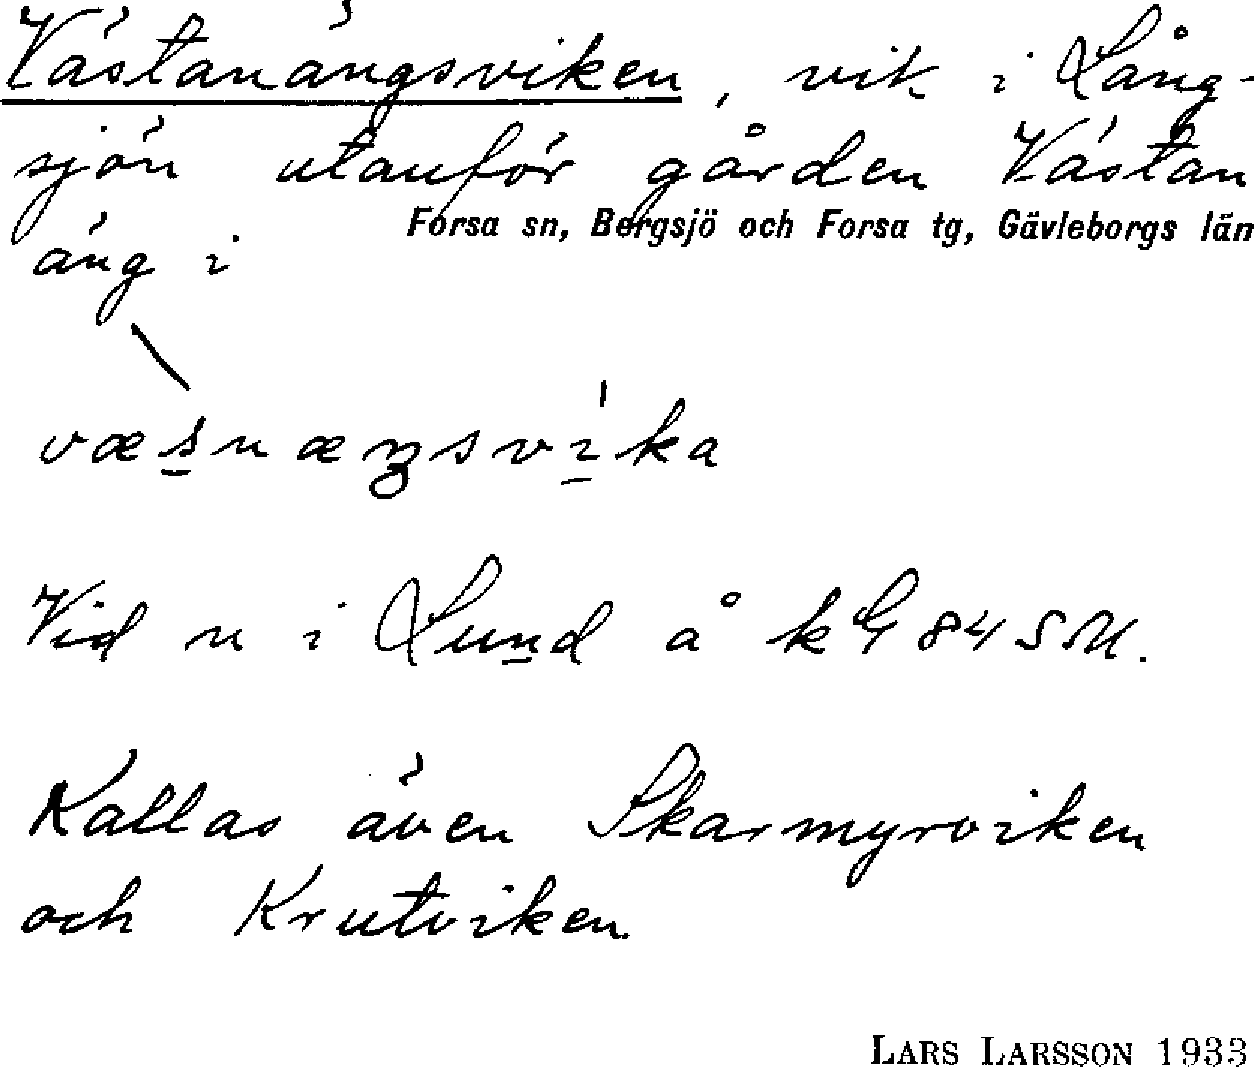 Västanängsviken, vik i Lång-
sjön utanför gården Västan
äng i
Forsa sn, Bergsjö och Forsa tg, Gävleborgs län
væsnæŋsvika
Vid n i Lund å k G 84 SM.
Kallas även Skarmyrviken
och Krutviken.
LARS LARSSON 1933